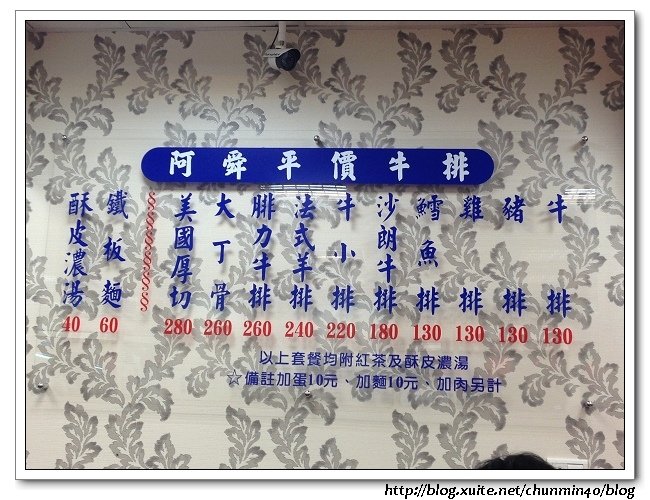 阿舜平價牛排
牛排 130
豬排 130
雞排 130
鱈魚排 130
沙朗牛排 180
牛小排 220
法式羊排 240
腓力牛排 260
大丁骨 260
美國厚切 280
§§§§§§§
鐵板麵 60
酥皮濃湯 40
以上套餐均附紅茶及酥皮濃湯
☆備註加蛋10元、加麵10元、加肉另計
http://blog.xuite.net/chunmin40/blog